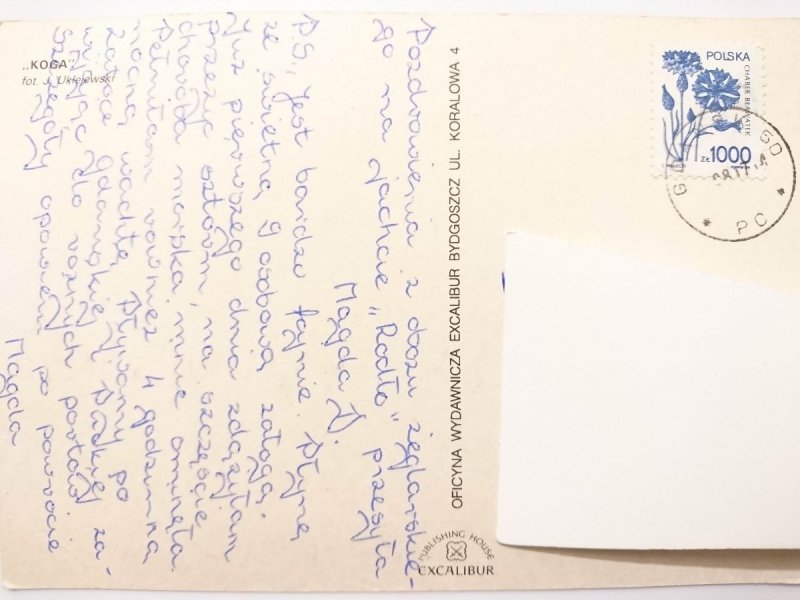 „KOGA"
fot J. Uklejewski
Pozdrowienia z obozu żeglarskie-
go na jachcie „Rodło" przesyła
Magda J.
P.S. Jest bardzo fajnie. Płynę
ze świetną 9 osobową załogą.
Już pierwszego dnia zdążyłam
przeżyć sztorm, na szczęście
choroba morska mnie ominęła.
Pełniłam również 4 godzinną
nocną wachtę. Pływamy po
zatoce gdańskiej i Puckiej za-
wijając do różnych portów.
Szczegóły opowiem po powrocie
Magda
OFICYNA WYDAWNICZA EXCALIBUR BYDGOSZCZ UL. KORALOWA 4
PUBLISHING HOUSE
EXCALIBUR
POLSKA
CHABER BŁAWATEK
ZŁ 1000
50
PC